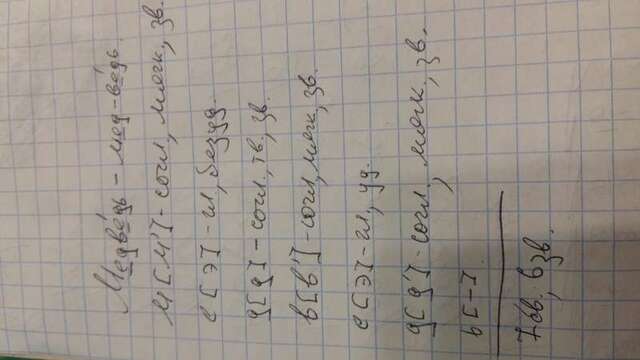 Медве́дь – мед-ве́дь.
м[м'] - согл, мягк., зв.
е[э] - гл, безуд.
д[д] - согл, тв., зв.
в[в'] - согл, мягк, зв.
е[э] - гл, уд.
д[д'] - согл., мягк, зв.
ь[-]
7 бв., 6 зв.